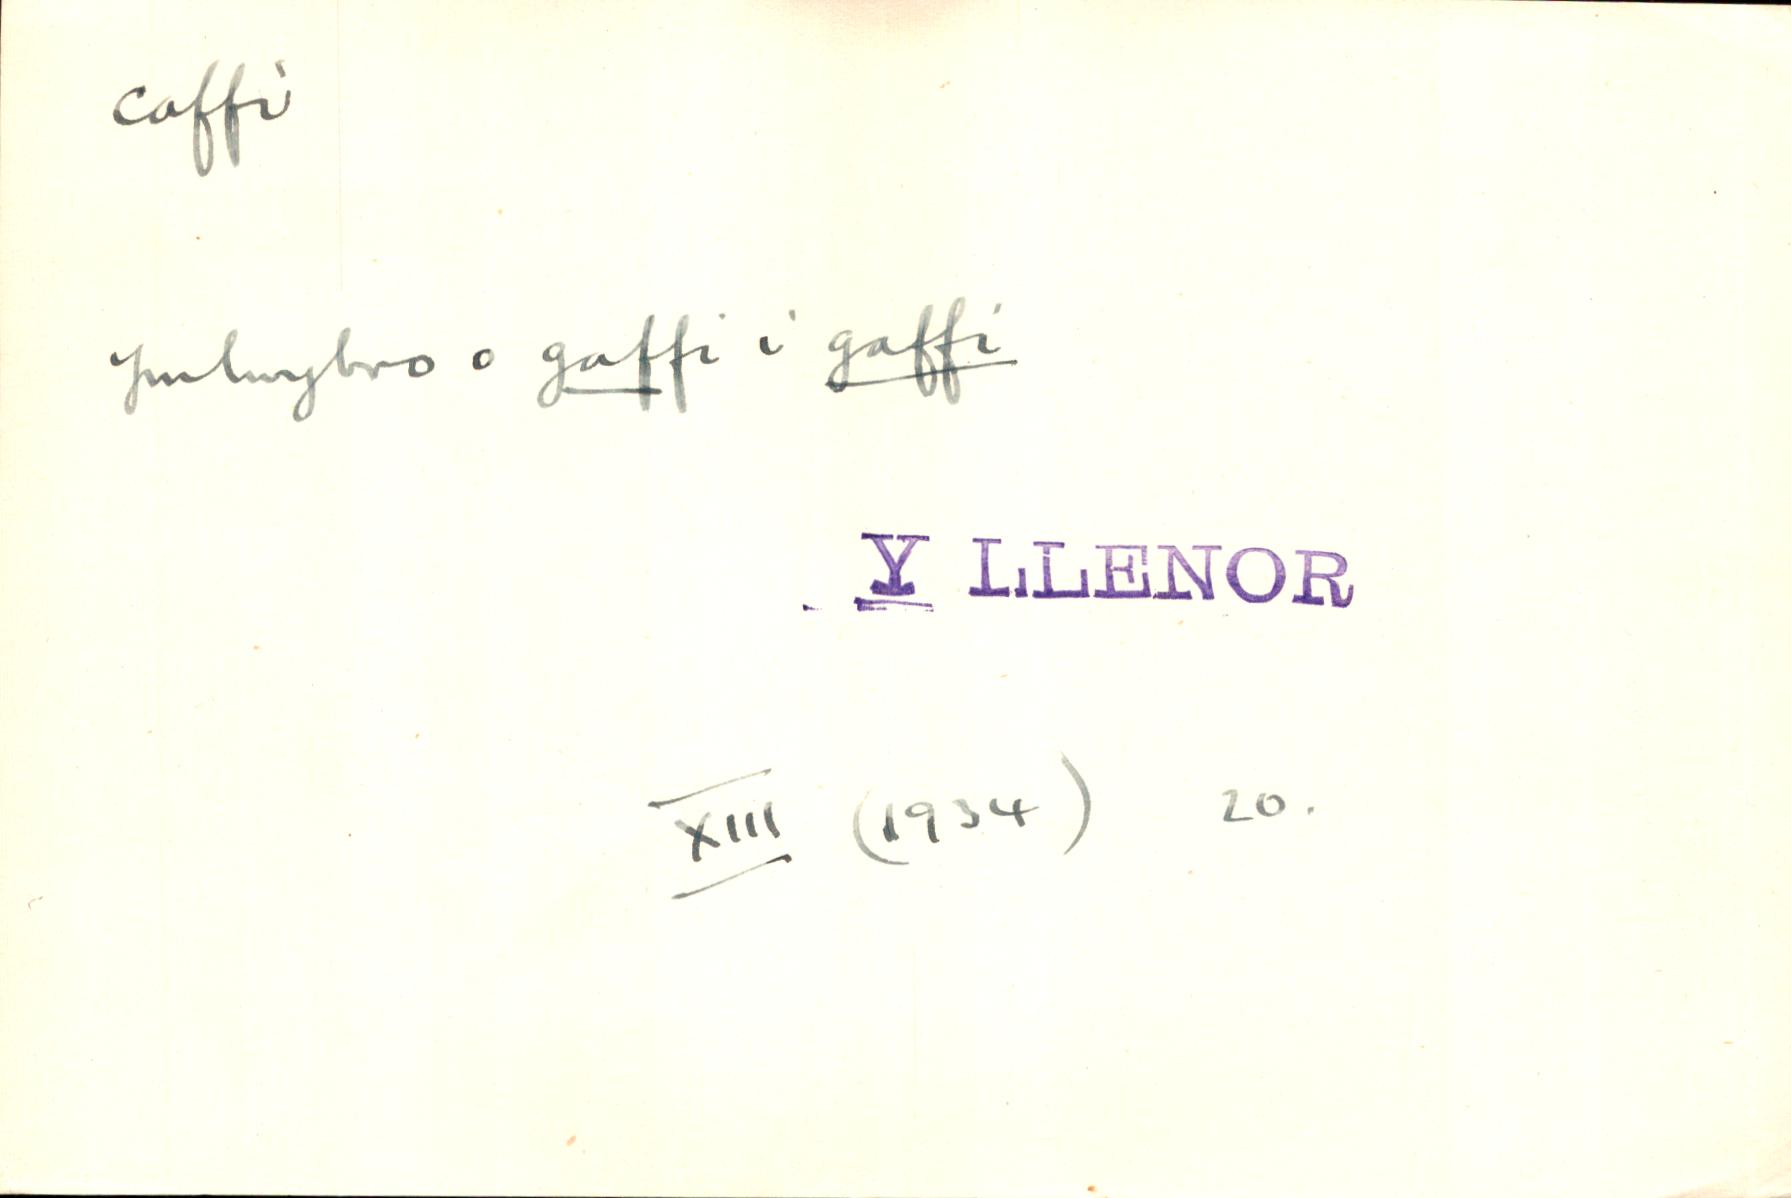 caffi
ymlwybro o gaffi i gaffi
Y LLENOR
XIII (1934) 20.